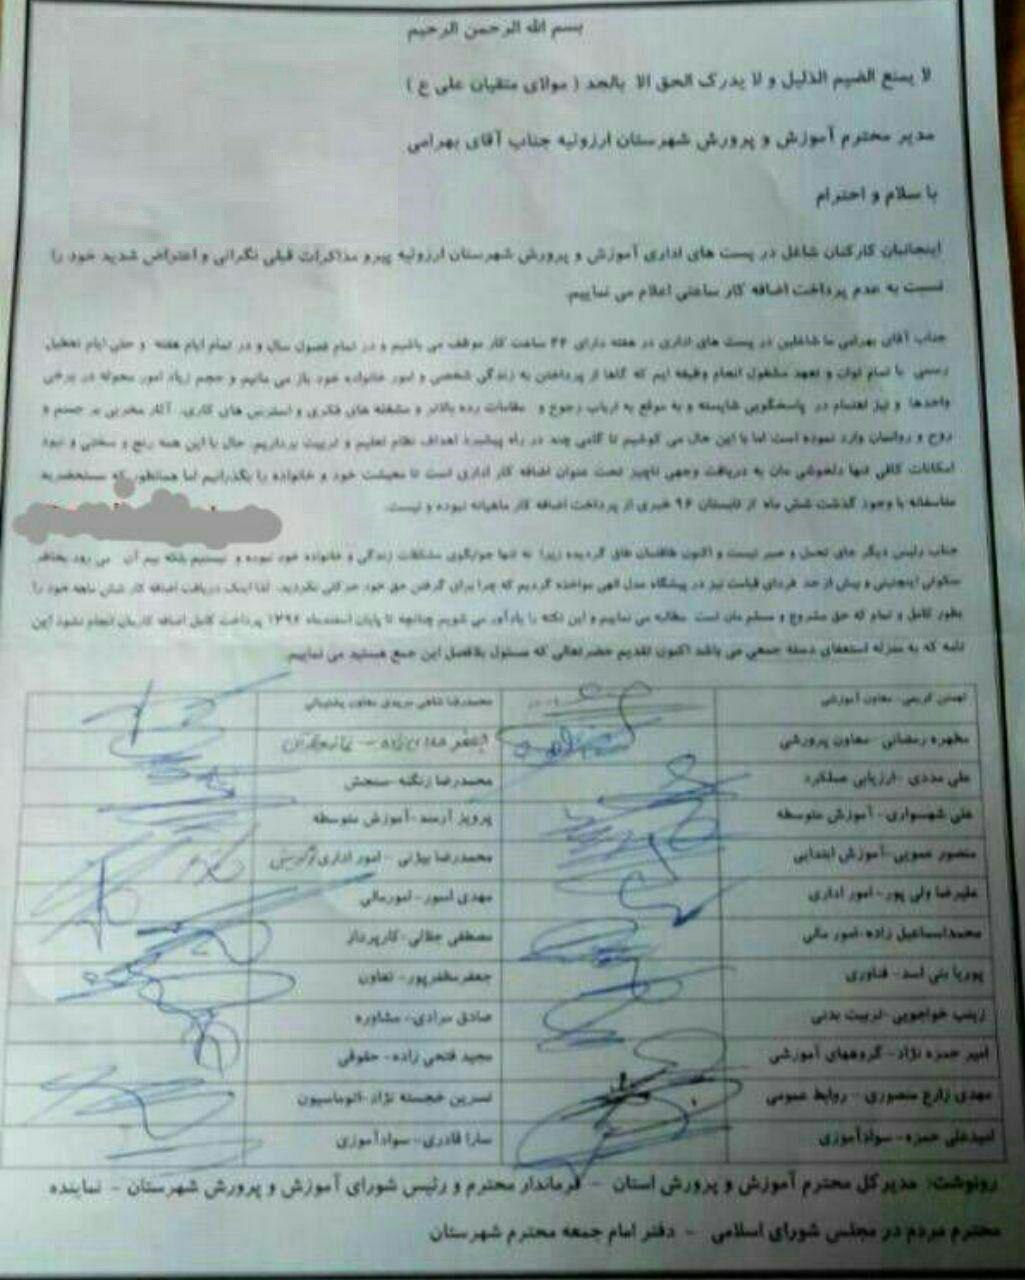 بسم الله الرحمن الرحیم
لا یمنع الضیم الذلیل و لا یدرک الحق الا بالجد ( مولای متقیان علی ع )
مدیر محترم آموزش و پرورش شهرستان ارزوئیه جناب آقای بهرامی
با سلام و احترام
اینجانبان کارکنان شاغل در پست های اداری آموزش و پرورش شهرستان ارزوئیه پیرو مذاکرات قبلی نگرانی و اعتراض شدید خود را
نسبت به عدم پرداخت اضافه کار ساعتی اعلام می نماییم.
جناب آقای بهرامی ما شاغلین در پست های اداری در هفته دارای ۴۴ ساعت کار موظف می باشیم و در تمام فصول سال و در تمام ایام هفته و حتی ایام تعطیل
رسمی با تمام توان و تعهد مشغول انجام وظیفه ایم که گاها از پرداختن به زندگی شخصی و امور خانواده خود باز می مانیم و حجم زیاد امور محوله در برخی
واحدها و نیز اهتمام در پاسخگویی شایسته و به موقع به ارباب رجوع و مقامات رده بالاتر و مشغله های فکری و استرس های کاری، آثار مخربی بر جسم و
روح و روانمان وارد نموده است اما با این حال می کوشیم تا گامی چند در راه پیشبرد اهداف نظام تعلیم و تربیت برداریم. حال با این همه رنج و سختی و نبود
امکانات کافی تنها دلخوشی مان به دریافت وجهی ناچیز تحت عنوان اضافه کار اداری است تا معیشت خود و خانواده را بگذرانیم اما همانطور که مستحضرید
متاسفانه با وجود گذشت شش ماه از تابستان ۹۶ خبری از پرداخت اضافه کار ماهیانه نبوده و نیست.
جناب رئیس دیگر جای تحمل و صبر نیست و اکنون طاقتمان طاق گردیده زیرا نه تنها جوابگوی مشکلات زندگی و خانواده خود نبوده و نیستیم بلکه بیم آن می رود بخاطر
سکوتی اینچنینی و بیش از حد فردای قیامت نیز در پیشگاه عدل الهی مواخذه گردیم که چرا برای گرفتن حق خود حرکتی نکردید. لذا اینک دریافت اضافه کار شش ماهه خود را
بطور کامل و تمام که حق مشروع و مسلم مان است مطالبه می نماییم و این نکته را یادآور می شویم چنانچه تا پایان اسفندماه ۱۳۹۶ پرداخت کامل اضافه کارمان انجام نشود این
نامه که به منزله استعفای دسته جمعی می باشد اکنون تقدیم حضرتعالی که مسئول بلافصل این جمع هستید می نماییم.
بهمن کریمی- معاون آموزشی
محمدرضا شاهی مریدی معاون پشتیبانی
مطهره رمضانی- معاون پرورشی
علی مددی -ارزیابی عملکرد
محمدرضا زنگنه-سنجش
علی شهسواری- آموزش متوسطه
پرویز آرمند-آموزش متوسطه
منصور عمویی-آموزش ابتدایی
محمدرضا بیژنی - امور اداری
علیرضا ولی پور- امور اداری
مهدی اسور- امورمالی
محمداسماعیل زاده-امور مالی
مصطفی جلالی-کارپرداز
پوریا بنی اسد- فناوری
جعفر مظفرپور- تعاون
زینب خواجویی-تربیت بدنی
صادق مرادی- مشاوره
امیر حمزه نژاد- گروههای آموزشی
مجید فتحی زاده- حقوقی
مهدی زارع منصوری - روابط عمومی
نسرین خجسته نژاد-اتوماسیون
امیدعلی حمزه- سوادآموزی
سارا قادری- سوادآموزی
رونوشت: مدیر کل محترم آموزش و پرورش استان - فرماندار محترم و رئیس شورای آموزش و پرورش شهرستان - نماینده
محترم مردم در مجلس شورای اسلامی - دفتر امام جمعه محترم شهرستان